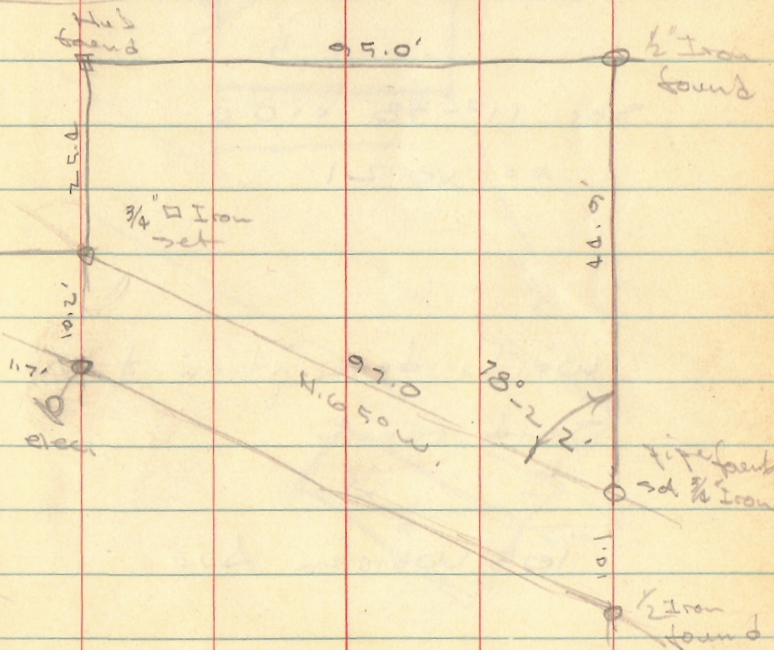 Hub
found
95.0'
1/2" Iron
found
25.4
3/4" □ Iron
set
44.6'
10.2'
97.0
N. 65 0 W.
78°-22'
1.7'
elec.
pipe found
sd 3/4" Iron
10.1
1/2 Iron
found